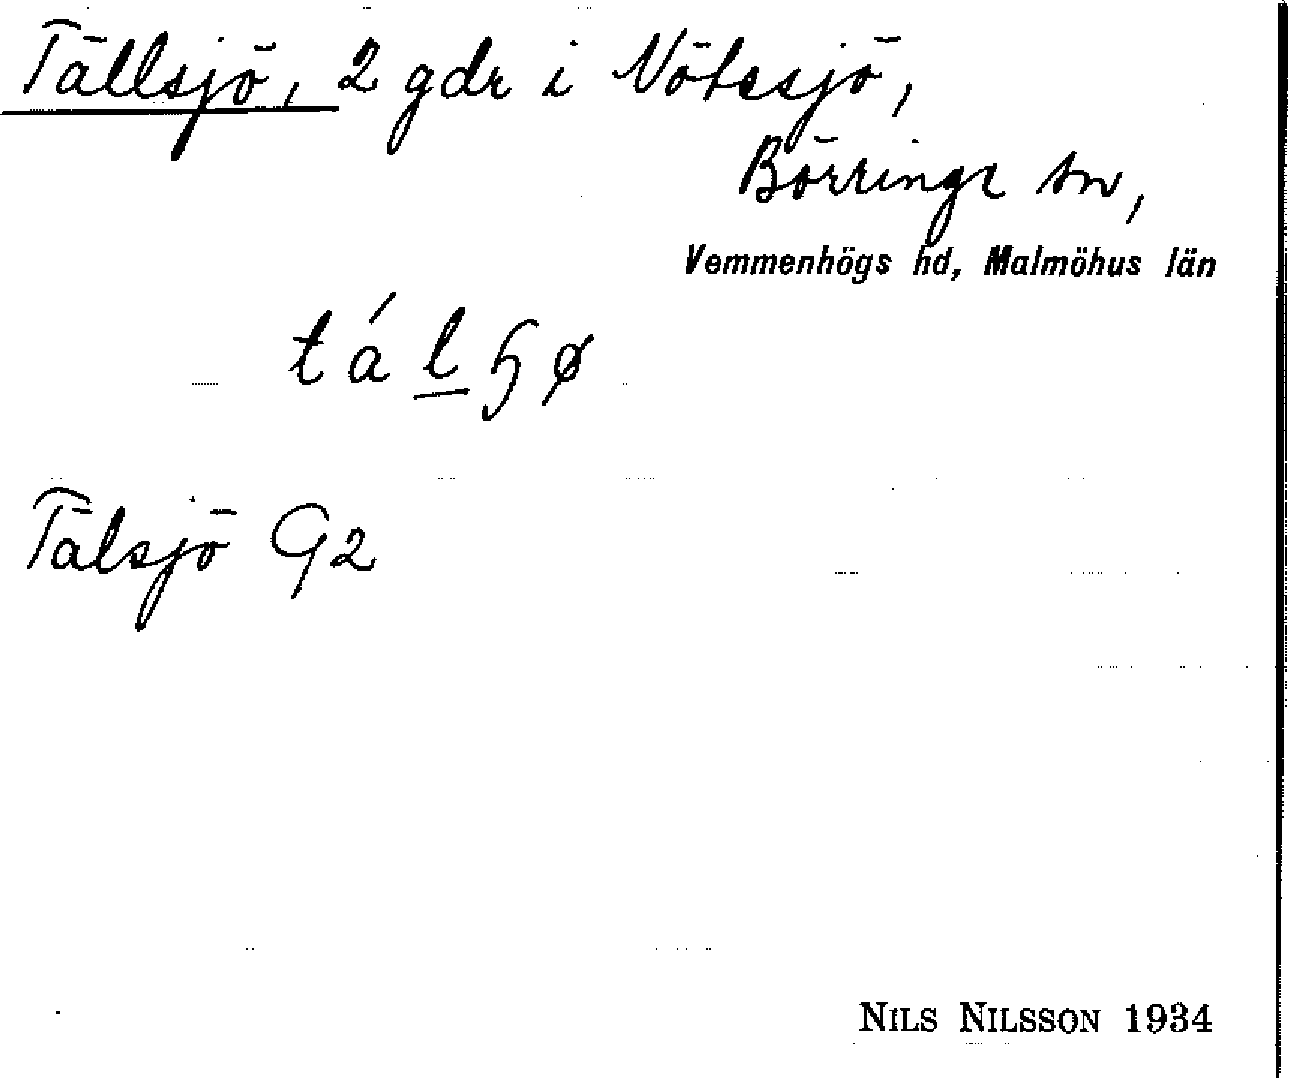 Tällsjö, 2 gdr i Nötesjö,
Börringe sn,
Vemmenhögs hd, Malmöhus län
tálɧø
Tälsjö G2
NILS NILSSON 1934